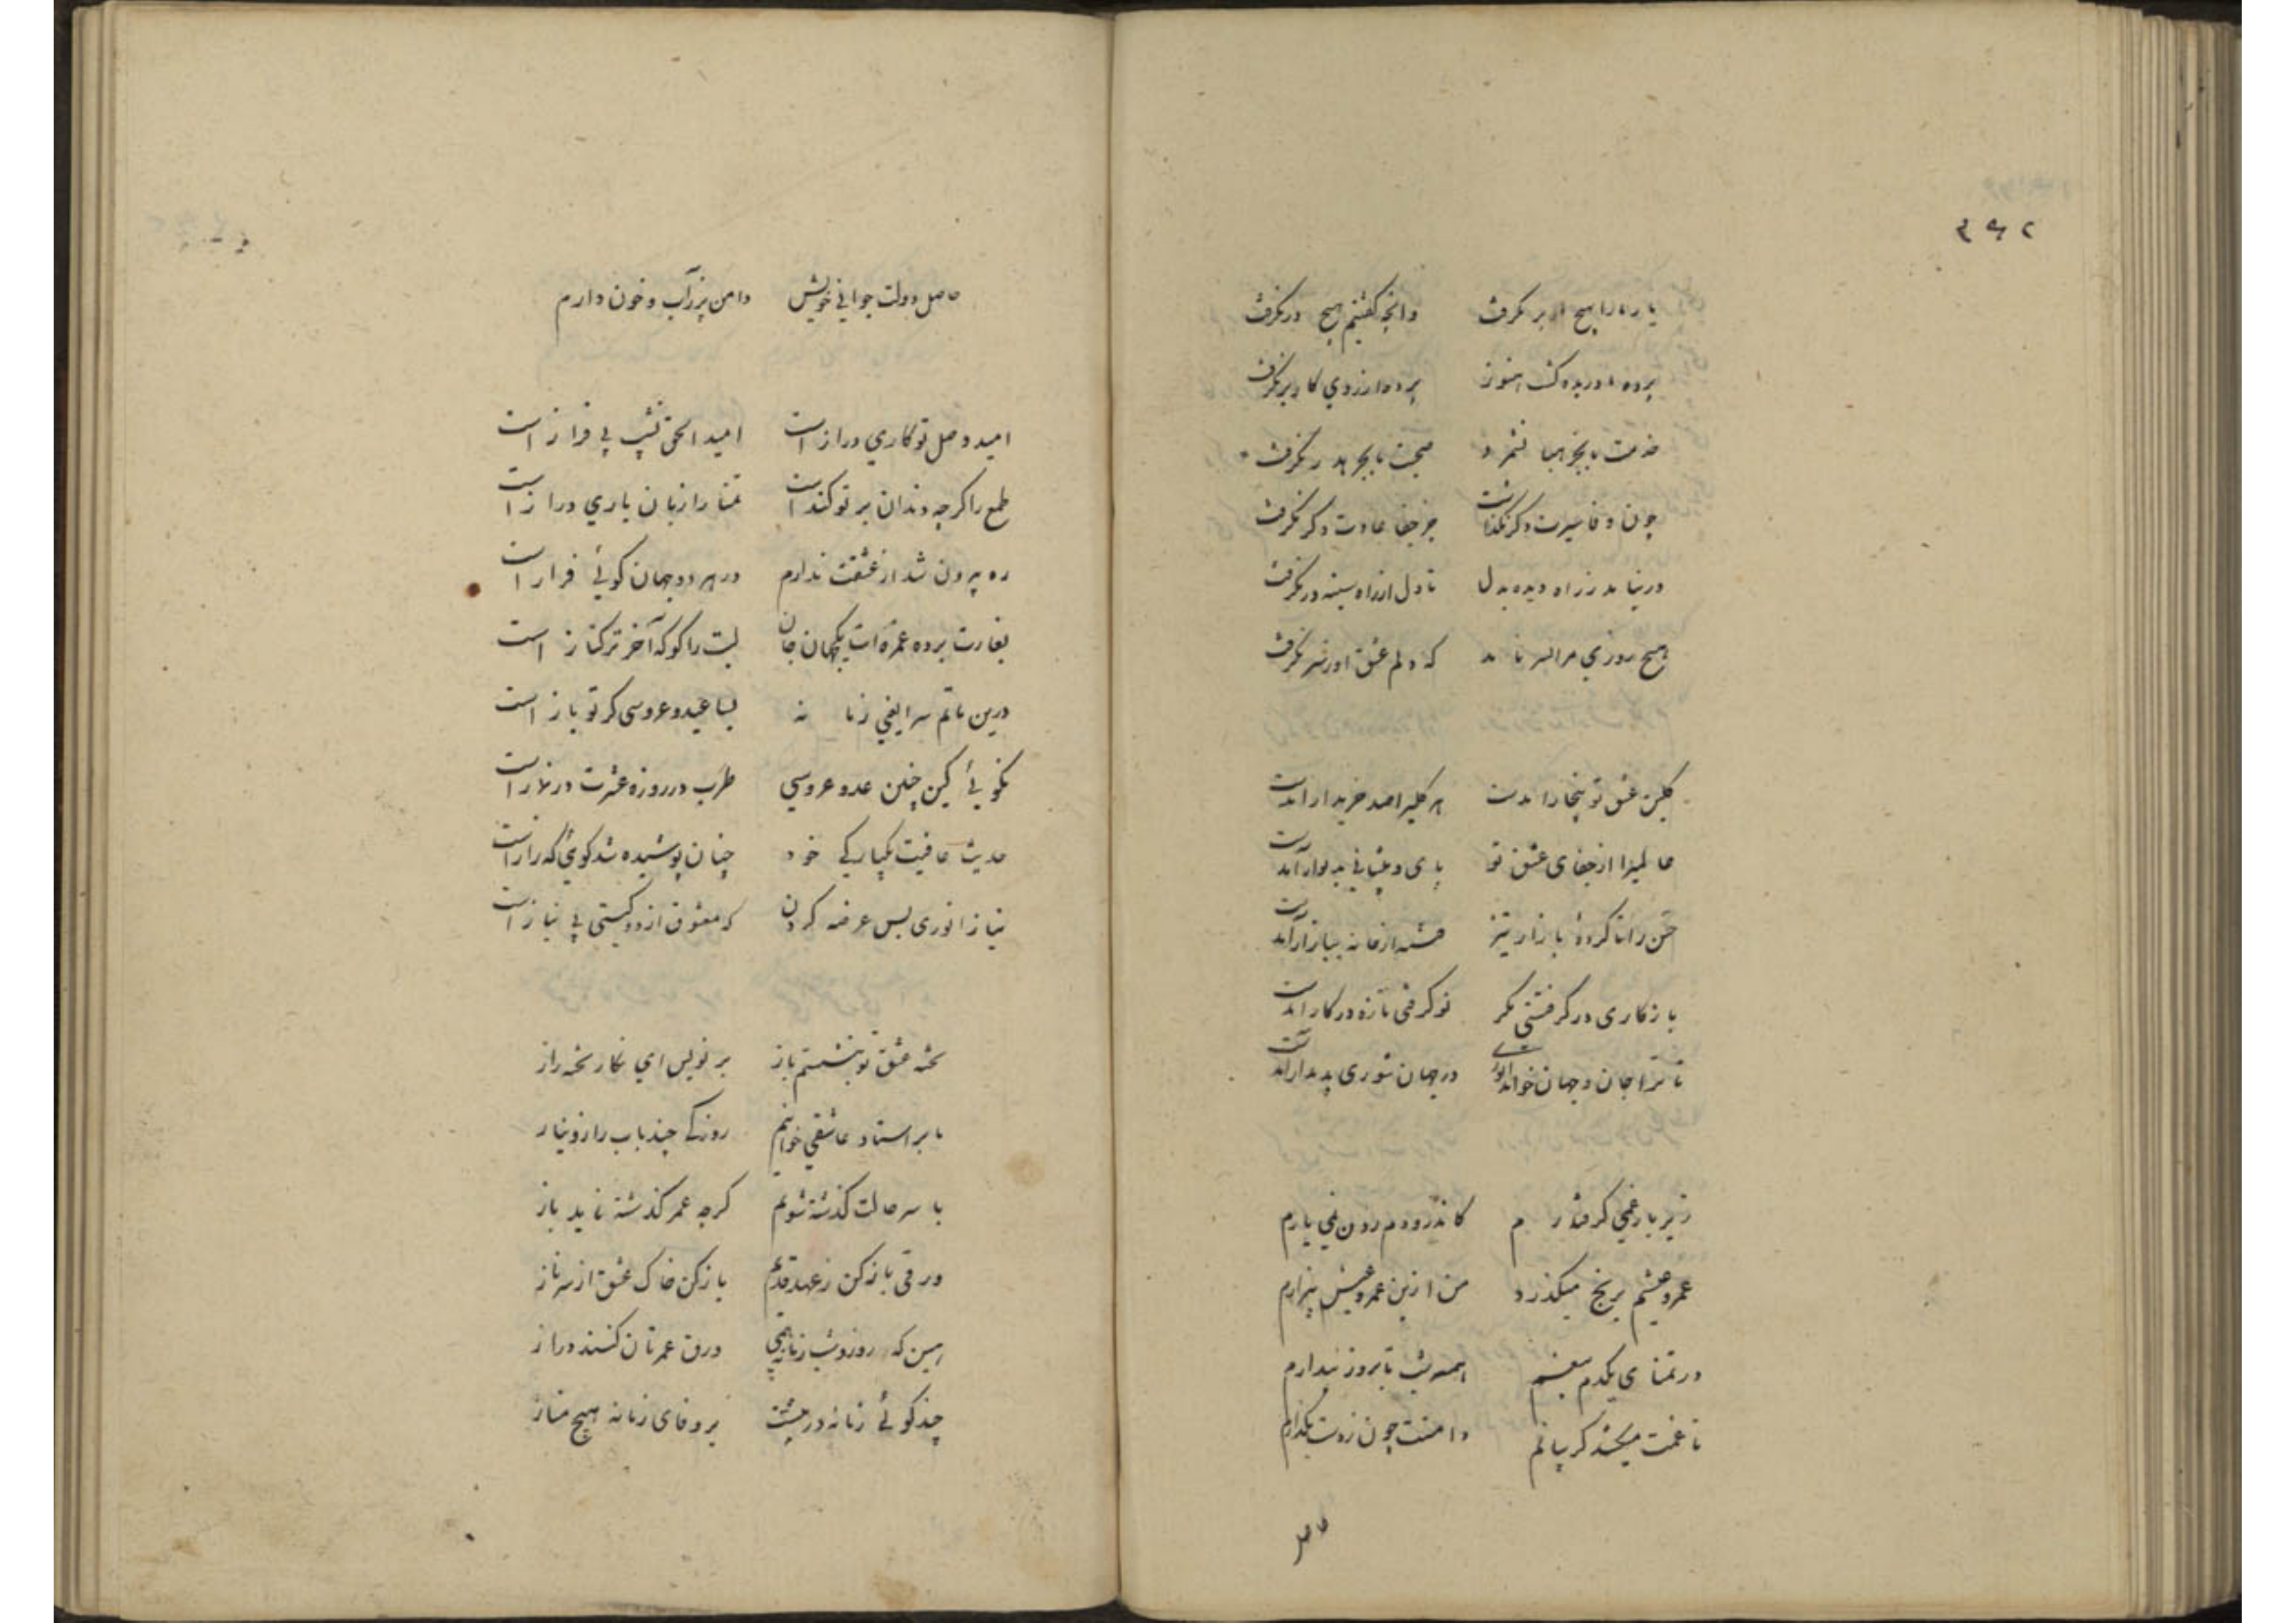 ۳۹۲
یار ما را بهیچ بر نگرفت وانچه گفتیم هیچ درنگرفت
پرده ما دریده گشت هنوز پرده از روی کار برنگرفت
خدمت ما بجز هبا نشمرد صحبت ما بجز هدر نگرفت
چون وفا سیرت دگر نگذاشت جز جفا عادت دگر نگرفت
درنیامد ز راه دیده بدل تا دل از راه سینه درنگرفت
هیچ روزی مرا بسر نامد که دلم عشق او ز سر نگرفت
گلبن عشق تو بیخار آمدست هر گلیرا صد خریدار آمدست
عالمیرا از جفای عشق تو پای و پیشانی بدیوار آمدست
حسن را تا کردۀ بازار تیز فتنه از خانه ببازار آمدست
باز کاری درگرفتی مگر نو گرفتی تازه در کار آمدست
تا ترا جان و جهان خواند انوری در جهان شوری پدیدار آمدست
زیر بار غمی گرفتارم کاندرو دم زدن نمی یارم
عمر و عیشم برنج میگذرد من ازین عمر و عیش بیزارم
در تمنای یکدم بیغم همه شب تا بروز بیدارم
تا غمت میکشد گریبانم دامنت چون ز دست بگذارم
حاصل دولت جوانی خویش دامن پر ز آب و خون دارم
امید وصل تو کاری دراز است امید الحق نشیبی فراز است
طمع را گرچه دندان بر تو کند است تمنا را زبان باری دراز است
ره بیرون شد از عشقت ندارم در هر دو جهان گوئی فراز است
بغارت برده غمزه ات یکجهان جان لبت را گو که آخر ترکتاز است
درین ماتم سرا یعنی زمانه بسا عید و عروسی کز تو باز است
نگوئی کین چنین عید و عروسی طرب در روزه عشرت در نماز است
حدیث عافیت یکبارگی خود چنان پوشیده شد گوئی که راز است
نیاز انوری بس عرضه کردن که معشوق از دو گیتی بی نیاز است
تخته عشق تو نبشتم باز بر نویس ای نگار تخته راز
ما بر استاد عاشقی خوانیم روزکی چند باب راز و نیاز
با سر حالت گذشته شویم گرچه عمر گذشته ناید باز
ورقی باز کن ز عهد قدیم باز کن خاک عشق از سر ناز
همین که روز و شب زمانه همی ورق عمرمان کند دراز
چند گوئی زمانه در پیشست بر وفای زمانه هیچ مناز